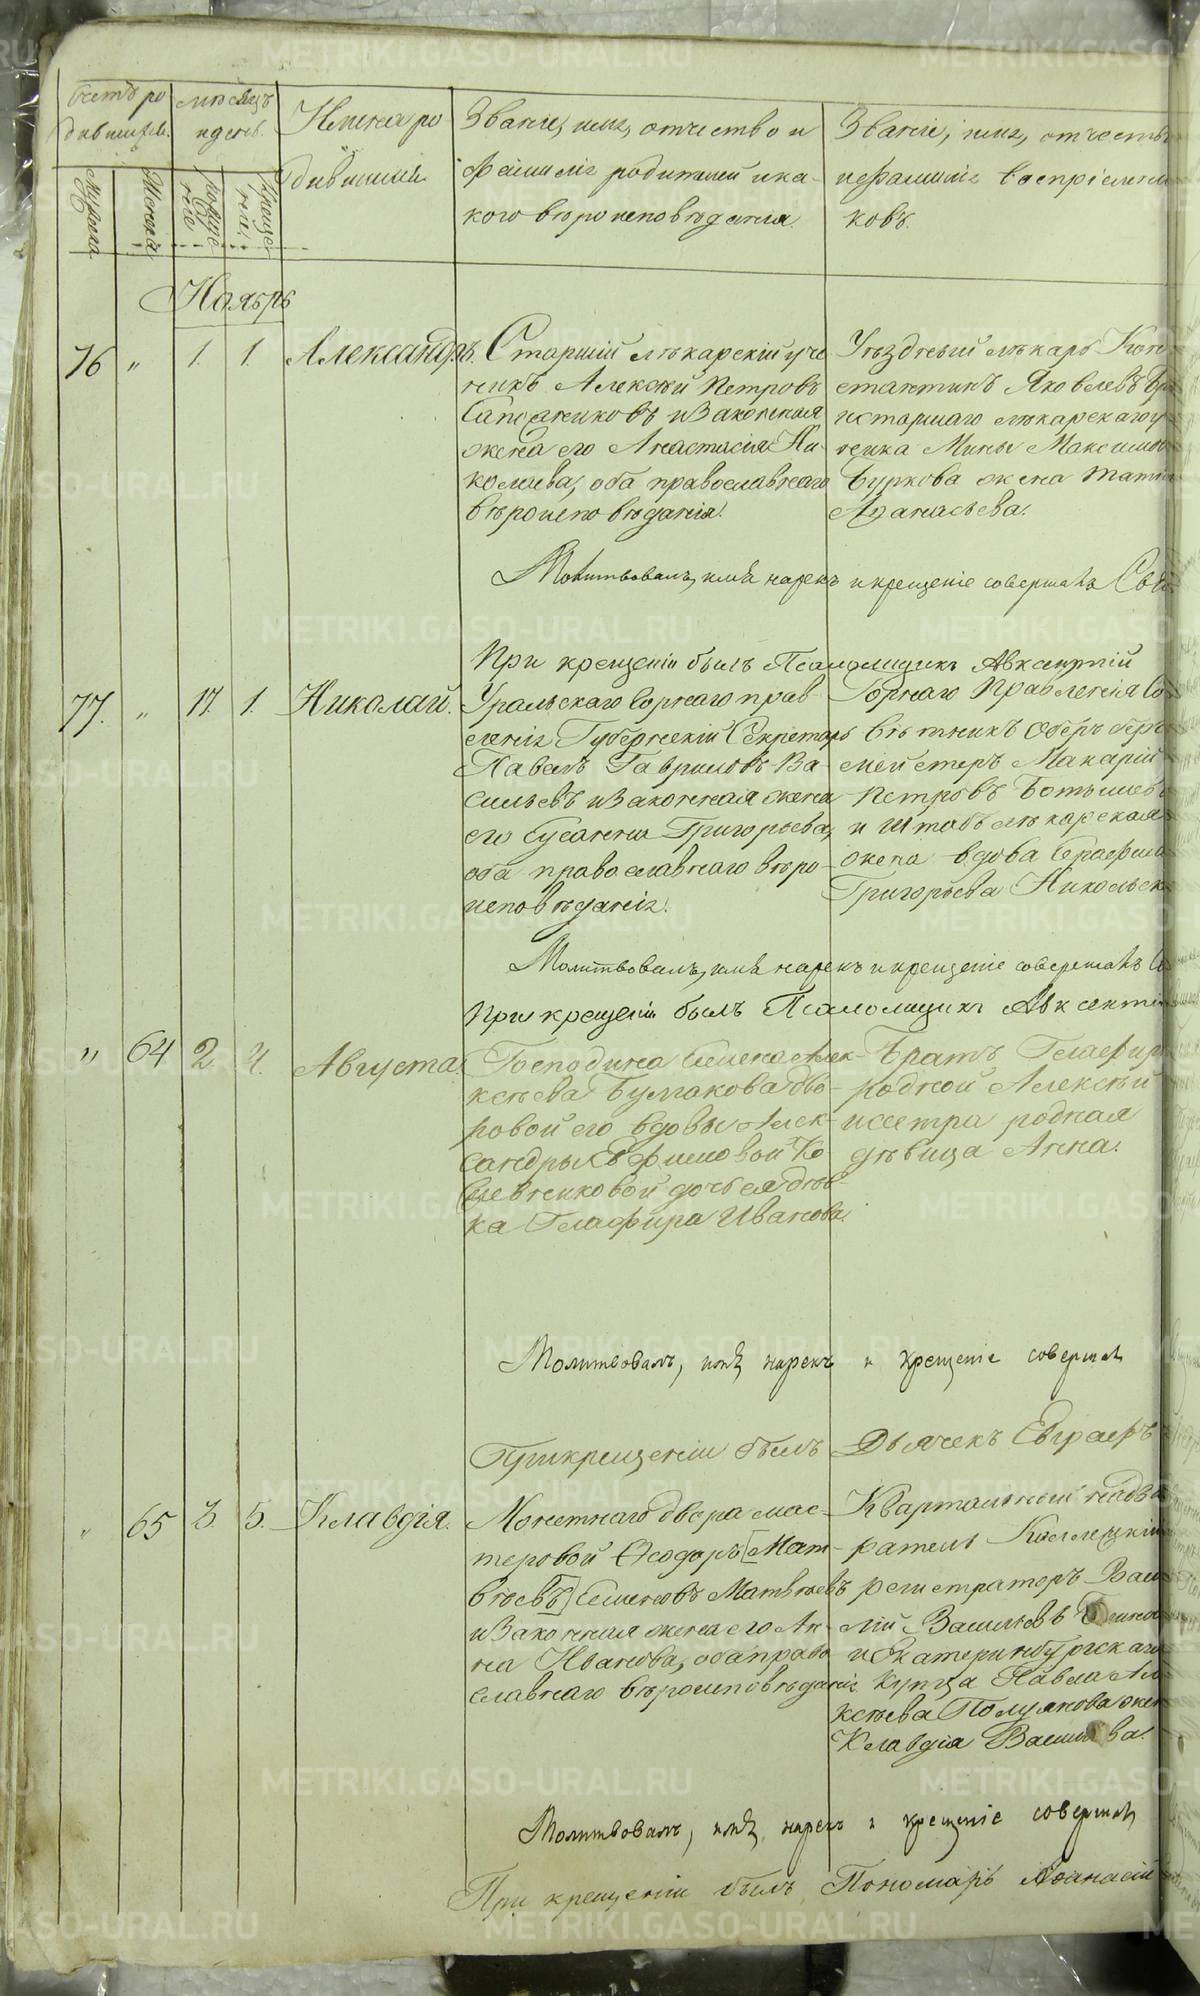 METRIKI.GASO-URAL.RU
Счетъ ро
дившихся.
Мѣсяцъ
и день.
Имена ро
дившихся.
Званіе, имя, отчество и
фамилія родителей и ка-
кого вѣроисповѣданія.
Званіе, имя, отчество
и фамилія воспріемни
ковъ.
Мужеска
Женска
рожде
нія
креще
нія
Ноябрь
76 „ 1. 1. Александръ.
Старшій лѣкарскій уче
никъ Алексѣй Петровъ
Сапожниковъ и законная
жена его Анастасія Ни-
колаева, оба православнаго
вѣроисповѣданія.
Уѣздный лѣкарь Кон
стантинъ Яковлевъ
и старшаго лѣкарскаго у
ченика Мины Максимова
Буркова жена Татьяна
Афанасьева.
Молитвовалъ, имя нарекъ и крещеніе совершалъ
При крещеніи былъ Псаломщикъ Авксентій
77. „ 17. 1. Николай.
Уральскаго Горнаго прав-
ленія Губернскій Секретарь
Павелъ Гавриловъ Ва-
сильевъ и законная жена
его Сусанна Григорьева,
оба православнаго вѣро-
исповѣданія.
Горнаго Правленія Со
вѣтникъ Оберъ берг
мейстеръ Макарій
Петровъ
и Штабъ лѣкарская
жена вдова Серафима
Григорьева Никольск
Молитвовалъ, имя нарекъ и крещеніе совершалъ
При крещеніи былъ Псаломщикъ Авксентій
„ 64 2. 4. Августа.
Господина Семена Алек-
ксѣева Булгакова дво-
ровой его вдовы Алек-
сандры Ефимовой Ко
жевниковой дочь ея дѣв-
ка Глафира Иванова.
Братъ Глафиры
родной Алексѣй
и сестра родная
дѣвица Анна.
Молитвовалъ, имя нарекъ и крещеніе совершалъ
При крещеніи былъ Дьячекъ Евграфъ
„ 65 3. 5. Клавдія.
Монетнаго двора мас-
теровой Ѳеодоръ [Мат-
вѣевъ] Семеновъ Матвѣевъ
и законная жена его Ан-
на Иванова, оба право
славнаго вѣроисповѣданія.
Квартальный надзи
ратель Коллежскій
регистраторъ Васи
лій Васильевъ
и Екатеринбургскаго
купца Павла Але
ксѣева Полуякова жен
Клавдія Васильева.
Молитвовалъ, имя нарекъ и крещеніе совершалъ
При крещеніи былъ Пономарь Афанасій